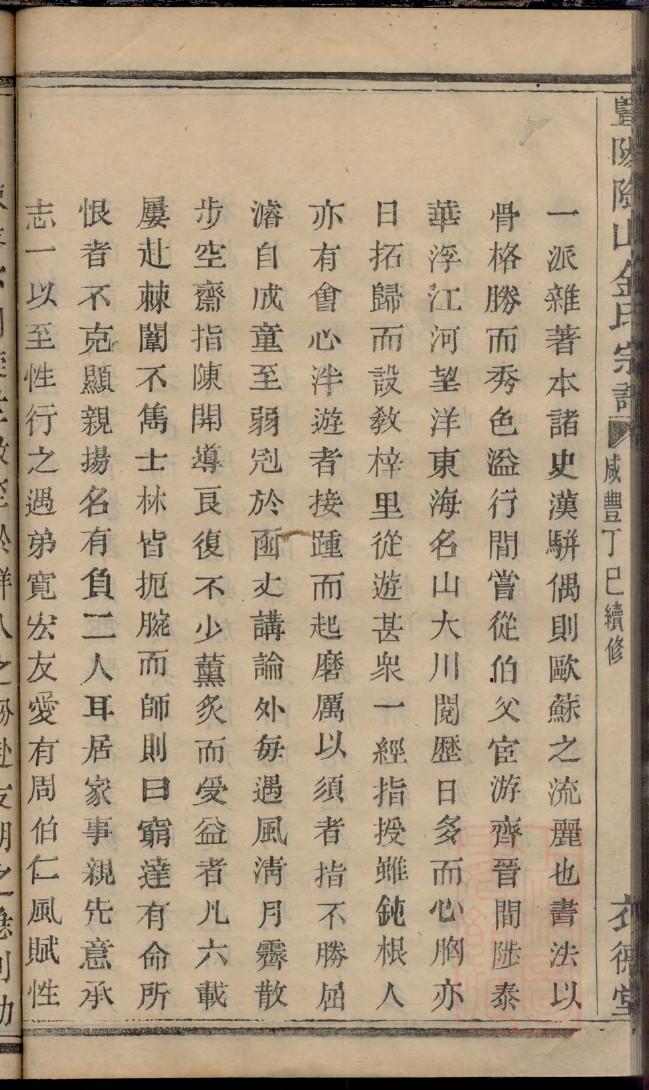 暨陽陰山金氏宗譜
咸豐丁巳續修
衣德堂
一派雜著本諸史漢駢偶則歐蘇之流麗也書法以
骨格勝而秀色溢行間嘗從伯父宦游齊晉間陟泰
華浮江河望洋東海名山大川閱歷日多而心胸亦
日拓歸而設教梓里從遊甚衆一經指授雖鈍根人
亦有會心泮遊者接踵而起磨厲以須者指不勝屈
濬自成童至弱冠於函丈講論外每遇風淸月霽散
步空齋指陳開導良復不少薰炙而受益者凡六載
屢赴棘闈不雋士林皆扼腕而師則曰窮達有命所
恨者不克顯親揚名有負二人耳居家事親先意承
志一以至性行之遇弟寬宏友愛有周伯仁風賦性